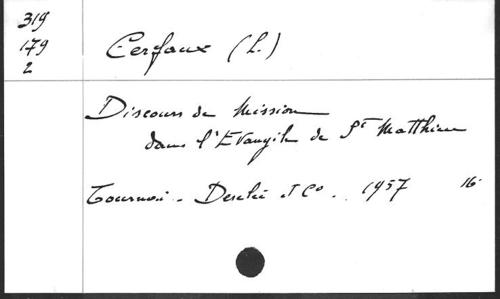 319
179
2
Cerfaux (L.)
Discours de Mission
dans l'Evangile de St Matthieu
Tournai - Desclée et Co. 1957 16